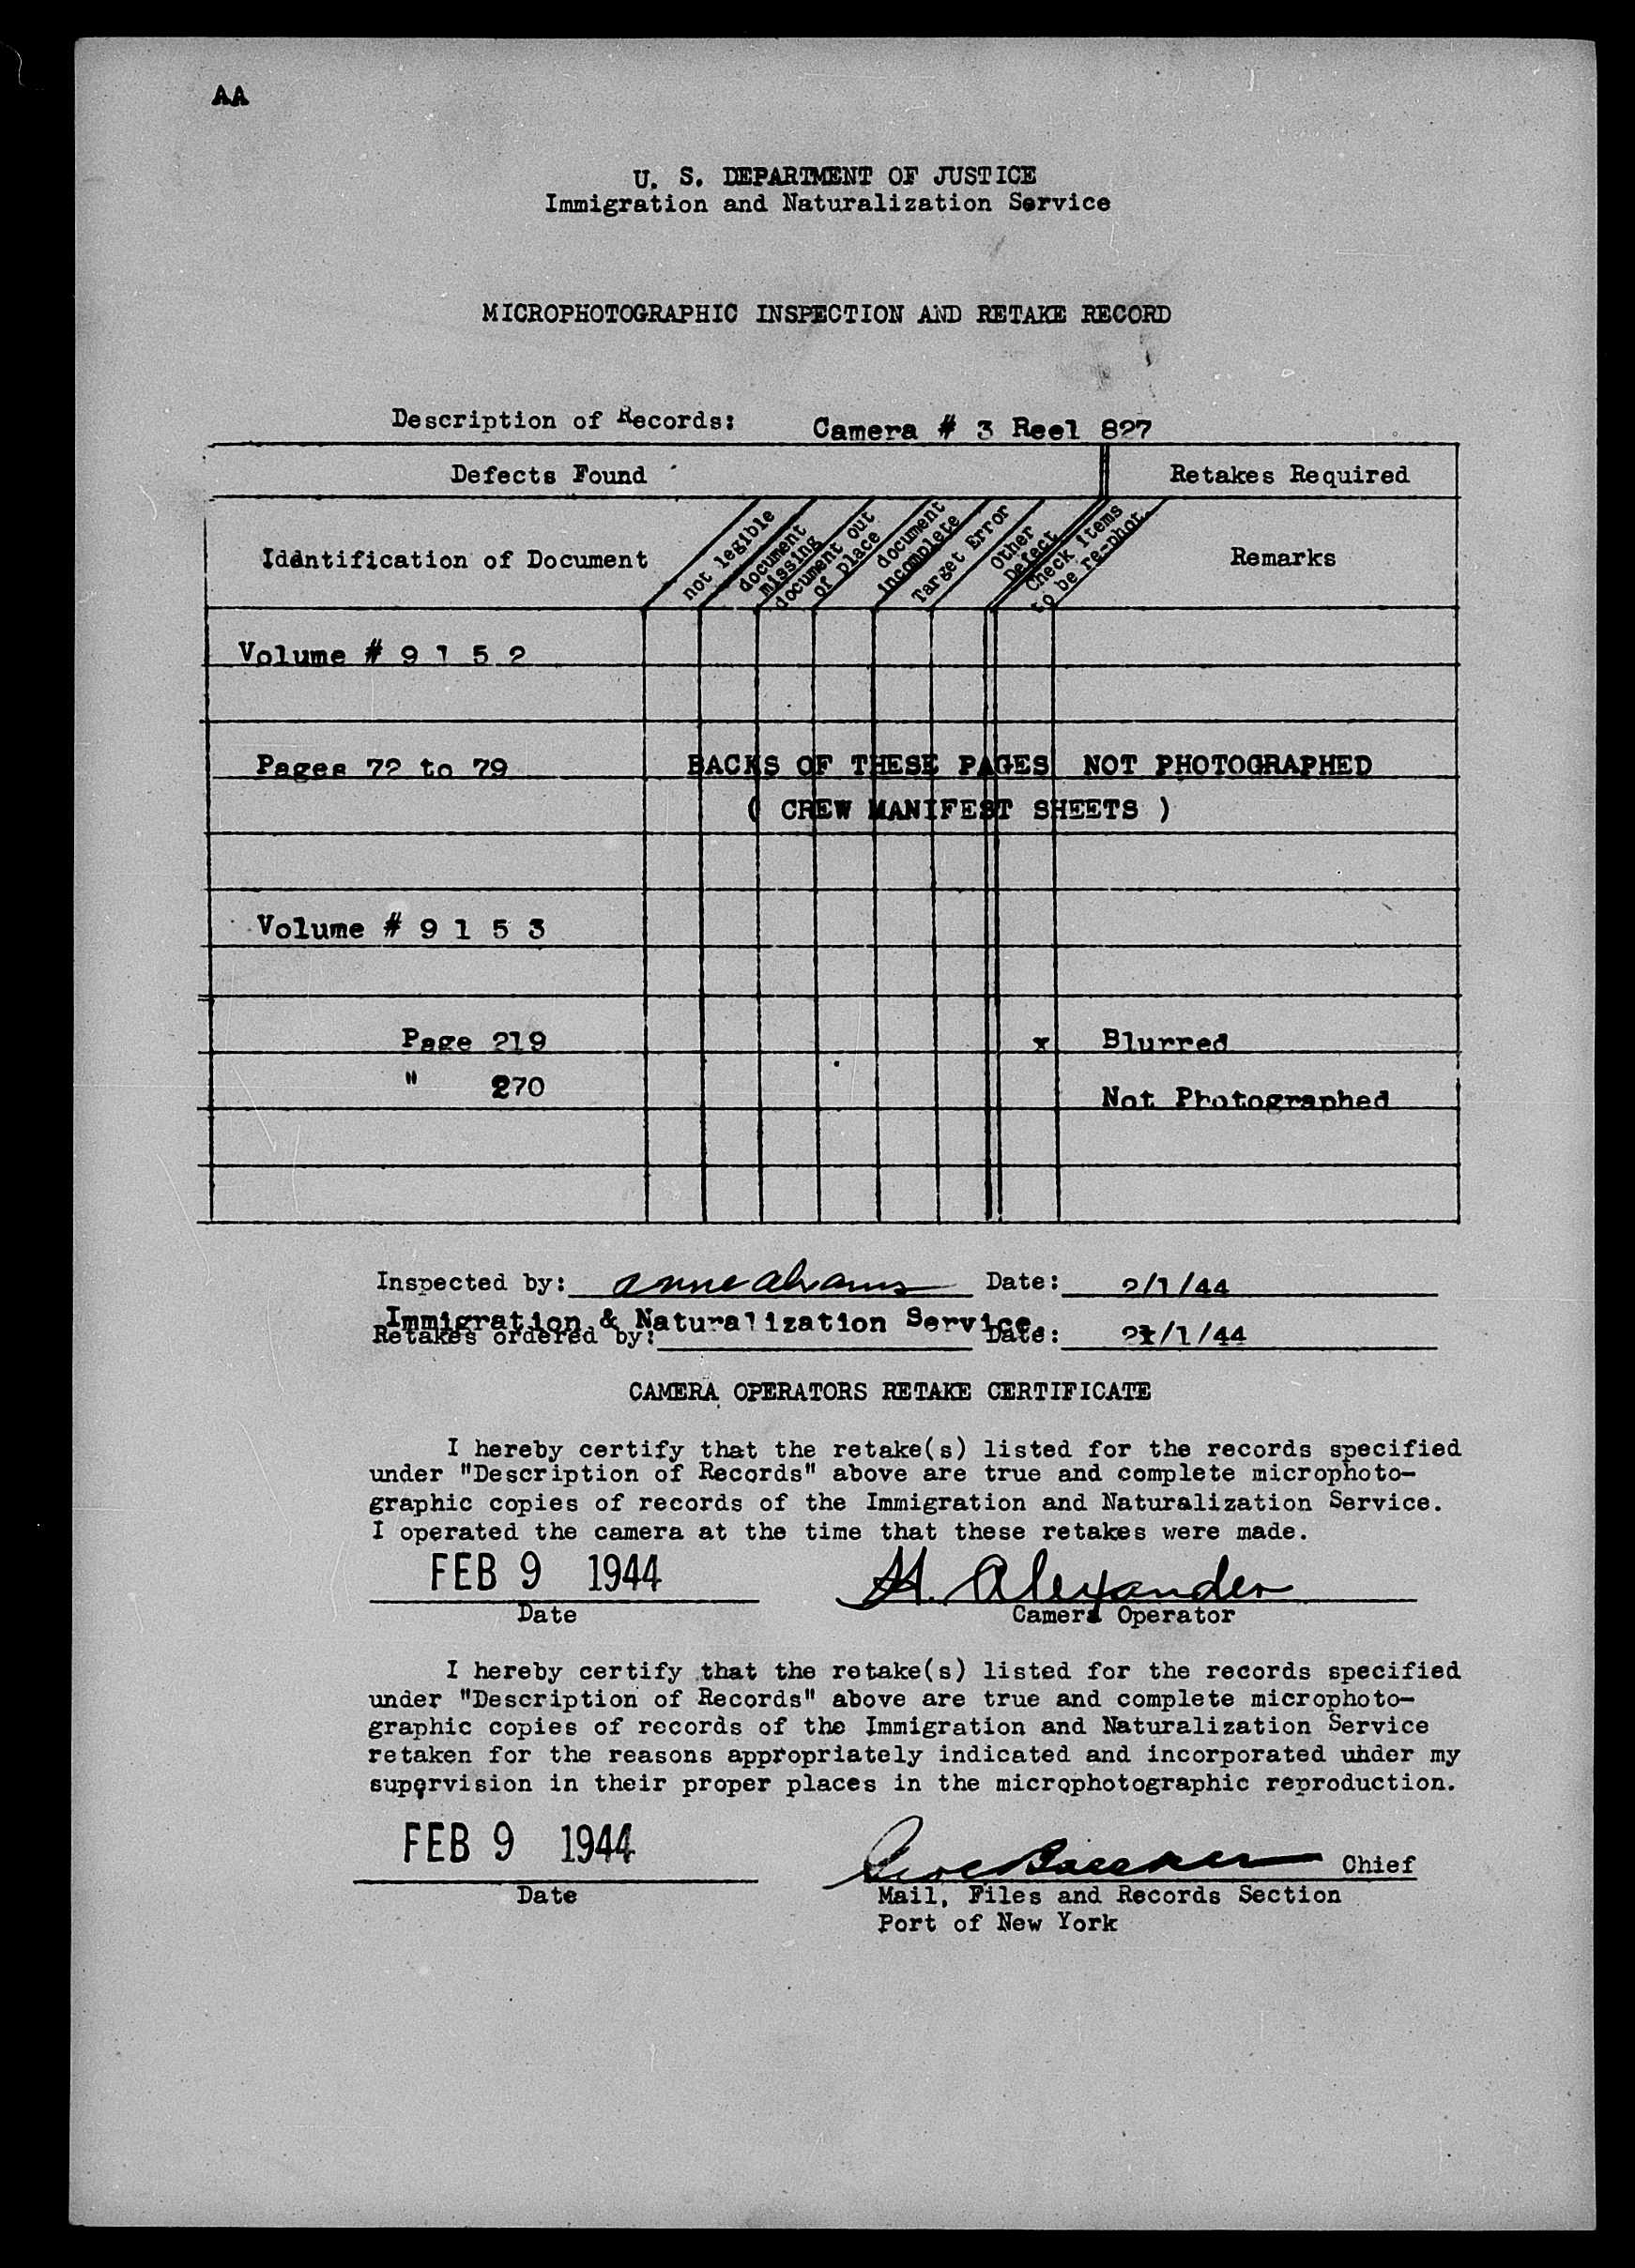 AA
U. S. DEPARTMENT OF JUSTICE
Immigration and Naturalization Service
MICROPHOTOGRAPHIC INSPECTION AND RETAKE RECORD
Description of Records: Camera # 3 Reel 827
Defects Found Retakes Required
Identification of Document
not legible
document
missing
document out
of place
document
incomplete
Target Error
Other
Defect
Check items
to be re-phot.
Remarks
Volume # 9 1 5 2
Pages 72 to 79 BACKS OF THESE PAGES NOT PHOTOGRAPHED
( CREW MANIFEST SHEETS )
Volume # 9 1 5 3
Page 219 x Blurred
" 270 Not Photographed
Inspected by: Anne Abrams Date: 2/1/44
Immigration & Naturalization Service.
Retakes ordered by: Date: 2/1/44
CAMERA OPERATORS RETAKE CERTIFICATE
I hereby certify that the retake(s) listed for the records specified
under "Description of Records" above are true and complete microphoto-
graphic copies of records of the Immigration and Naturalization Service.
I operated the camera at the time that these retakes were made.
FEB 9 1944 H. Alexander
Date Camera Operator
I hereby certify that the retake(s) listed for the records specified
under "Description of Records" above are true and complete microphoto-
graphic copies of records of the Immigration and Naturalization Service
retaken for the reasons appropriately indicated and incorporated under my
supervision in their proper places in the microphotographic reproduction.
FEB 9 1944 Chief
Date Mail, Files and Records Section
Port of New York